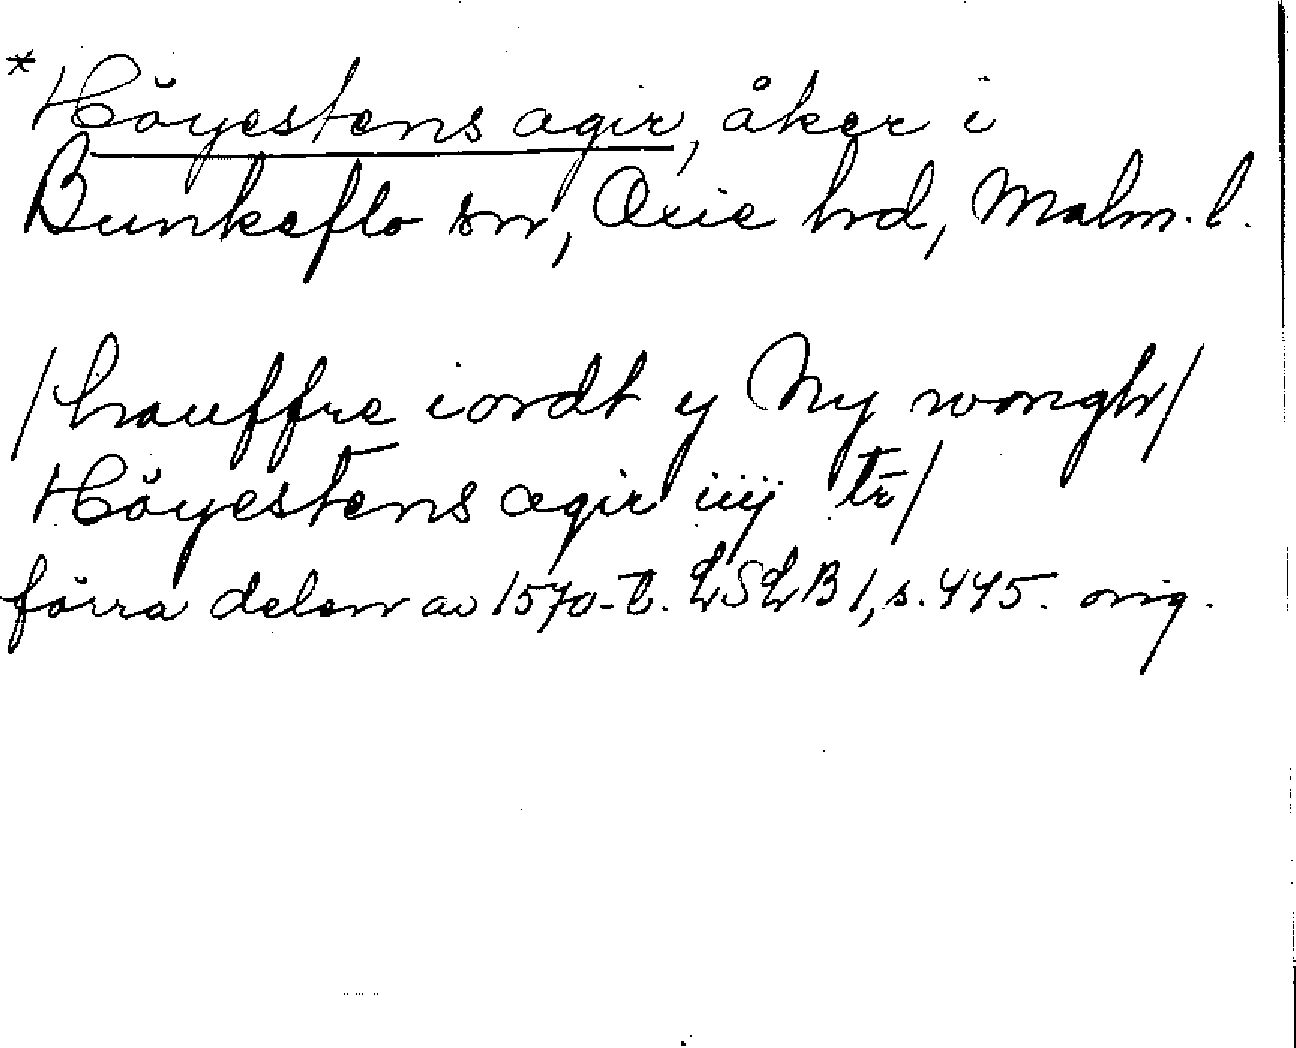 *Höyestens agir, åker i
Bunkeflo sn, Oxie hd, Malm. l.
/hauffre iordt y Ny wongh/
Höyestens agir iiij tr̄/
förra delen av 1570-t. LSLB 1, s. 445. orig.